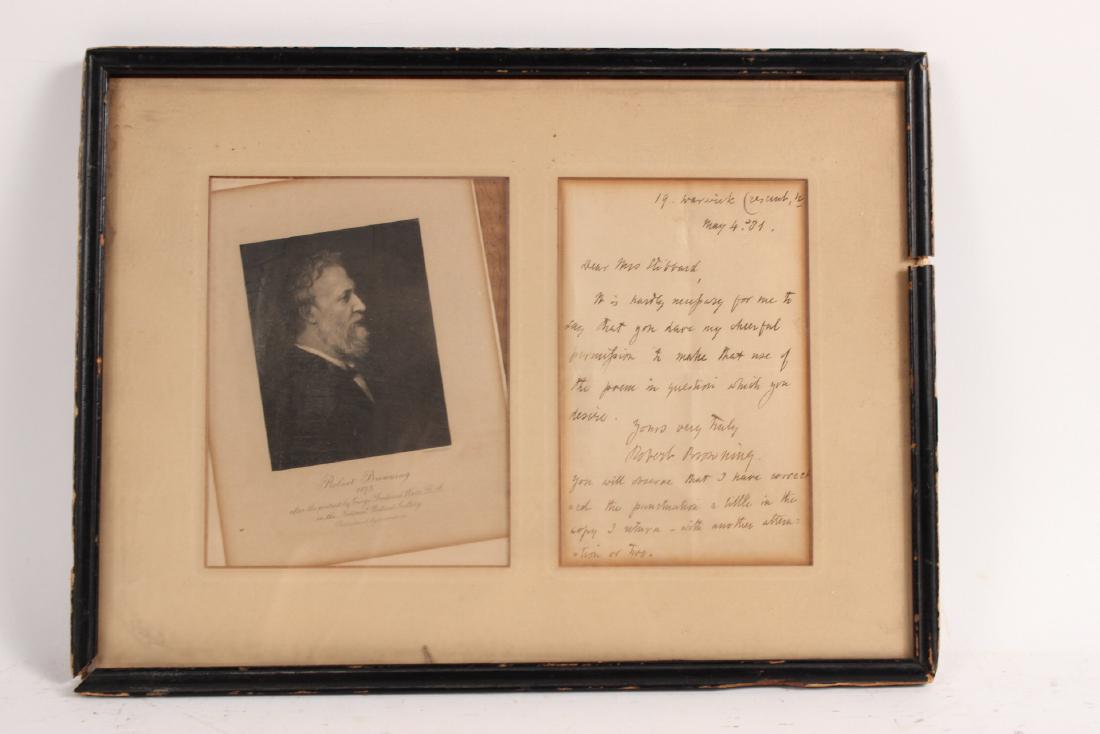 Robert Browning
1875
after the portrait by George Frederick Watts R. A.
in the National Portrait Gallery
19. Warwick Crescent, W
May 4. '81.
Dear Mrs Stibbard,
It is hardly necessary for me to
say that you have my cheerful
permission to make that use of
the poem in question which you
desire.
Yours very truly
Robert Browning.
You will observe that I have correct
-ed the punctuation a little in the
copy I return - with another altera-
-tion or two.